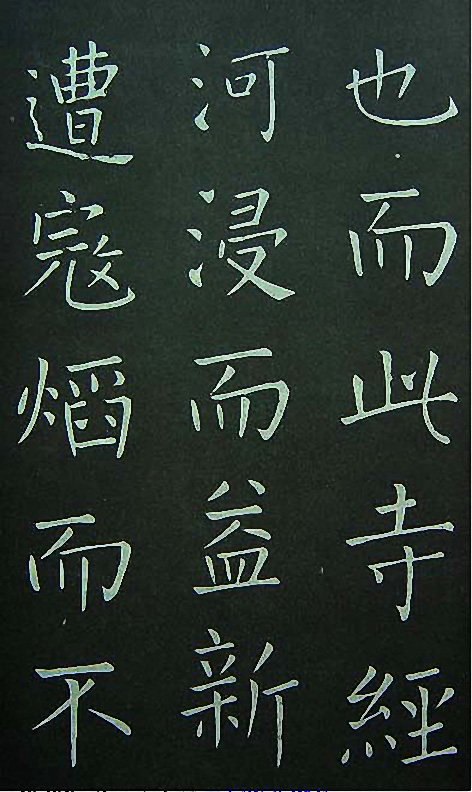 也而此寺經
河浸而益新
遭寇熖而不